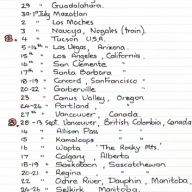 29 " Guadalahara.
30-1st July Mazatlan
2 " Los Moches
3 " Navojoa, Nogales (train).
4 " Tucson U.S.A.
5-14th " Las Vegas, Arizona.
15th " Los Angeles, California.
16th " San Clemente "
17th " Santa Barbara "
18-19 " Concord, San Francisco "
20-22 " Garberville "
23 " Camus Valley, Oregon
24-26 " Portland, "
27th " Vancouver, Canada.
28-13 Sept. Vancouver, British Colombia, Canada
14 " Allison Pass " "
15 " Kamaloops " "
16 " Wapta 'The Rocky Mts.'
17 " Calgary Alberta "
18-19 " Saskatoon, Saskatchewan
20-21 " Regina "
22 " Ochre River, Dauphin, Manitoba.
24-26 " Selkirk Manitoba.